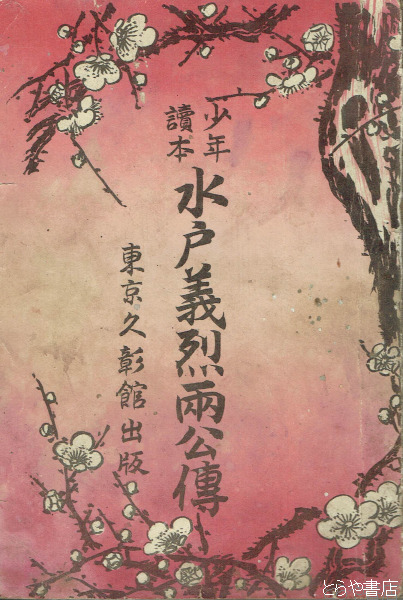 少年
讀本
水戸義烈兩公傳
東京久彰館出版
とらや書店